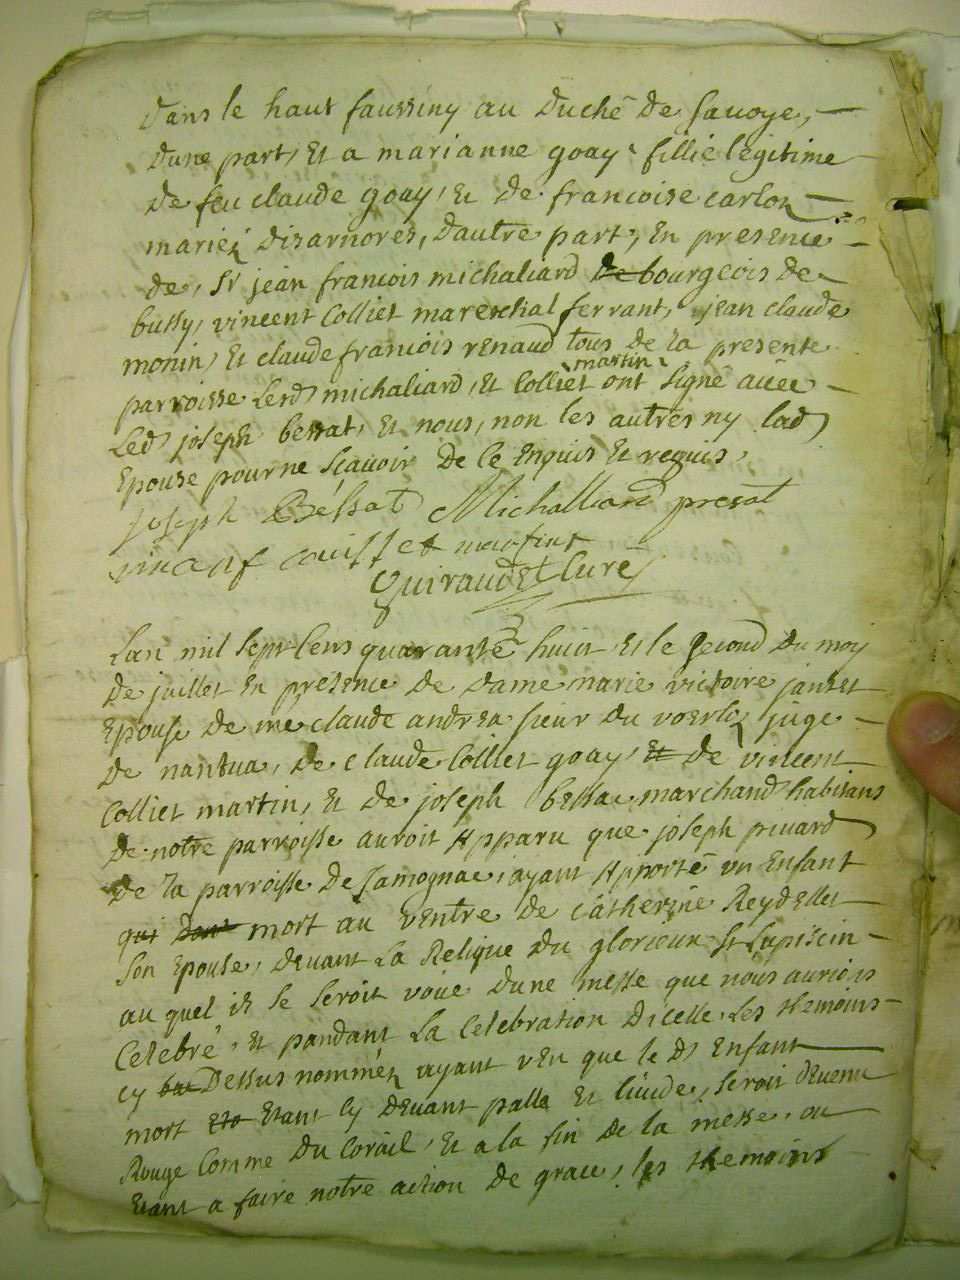 dans le haut faussiny au duché de savoye,
dune part, et a marianne goay fillie legitime
de feu claude goay, et de francoise carlon
mariez disarnores, dautre part, en presence
de, sr jean francois michaliard de bourgeois de
bussy, vincent Colliet mareschal ferrant, jean claude
monin, et claude francois renaud tous de la presente
martin
parroisse lesd michaliard, et Colliet ont signé avec
led joseph bessat, et nous, non les autres ny lad
Epouse pour ne scavoir de ce enquis et requis,
joseph Bessat Michalliard presat
martint
Guiraudet Curé
Lan mil sept Cens quarante huit et le second du moy
de juillet en presence de dame marie victoire jantet
epouse de me claude andrea sieur du voerle juge
de nantua, de claude Colliet goay, et de vincent
Colliet martin, et de joseph bessa marchand habitans
de notre parroisse auroit apparu que joseph pivard
de la parroisse de Samognac, ayant apporté un Enfant
qui dont mort au ventre de catherine Reydellet
son epouse, devant La Relique du glorieux St Lupiscin
au quel il se seroit voue dune messe que nous aurions
Celebré, et pandant la Celebration dicelle, les themoins
cy dessus nommez ayant veu que le d Enfant
mort etant cy devant palle et livide, seroit devenu
Rouge Comme du Corail, et a la fin de la messe, ou
etant a faire notre action de grace, les themoins